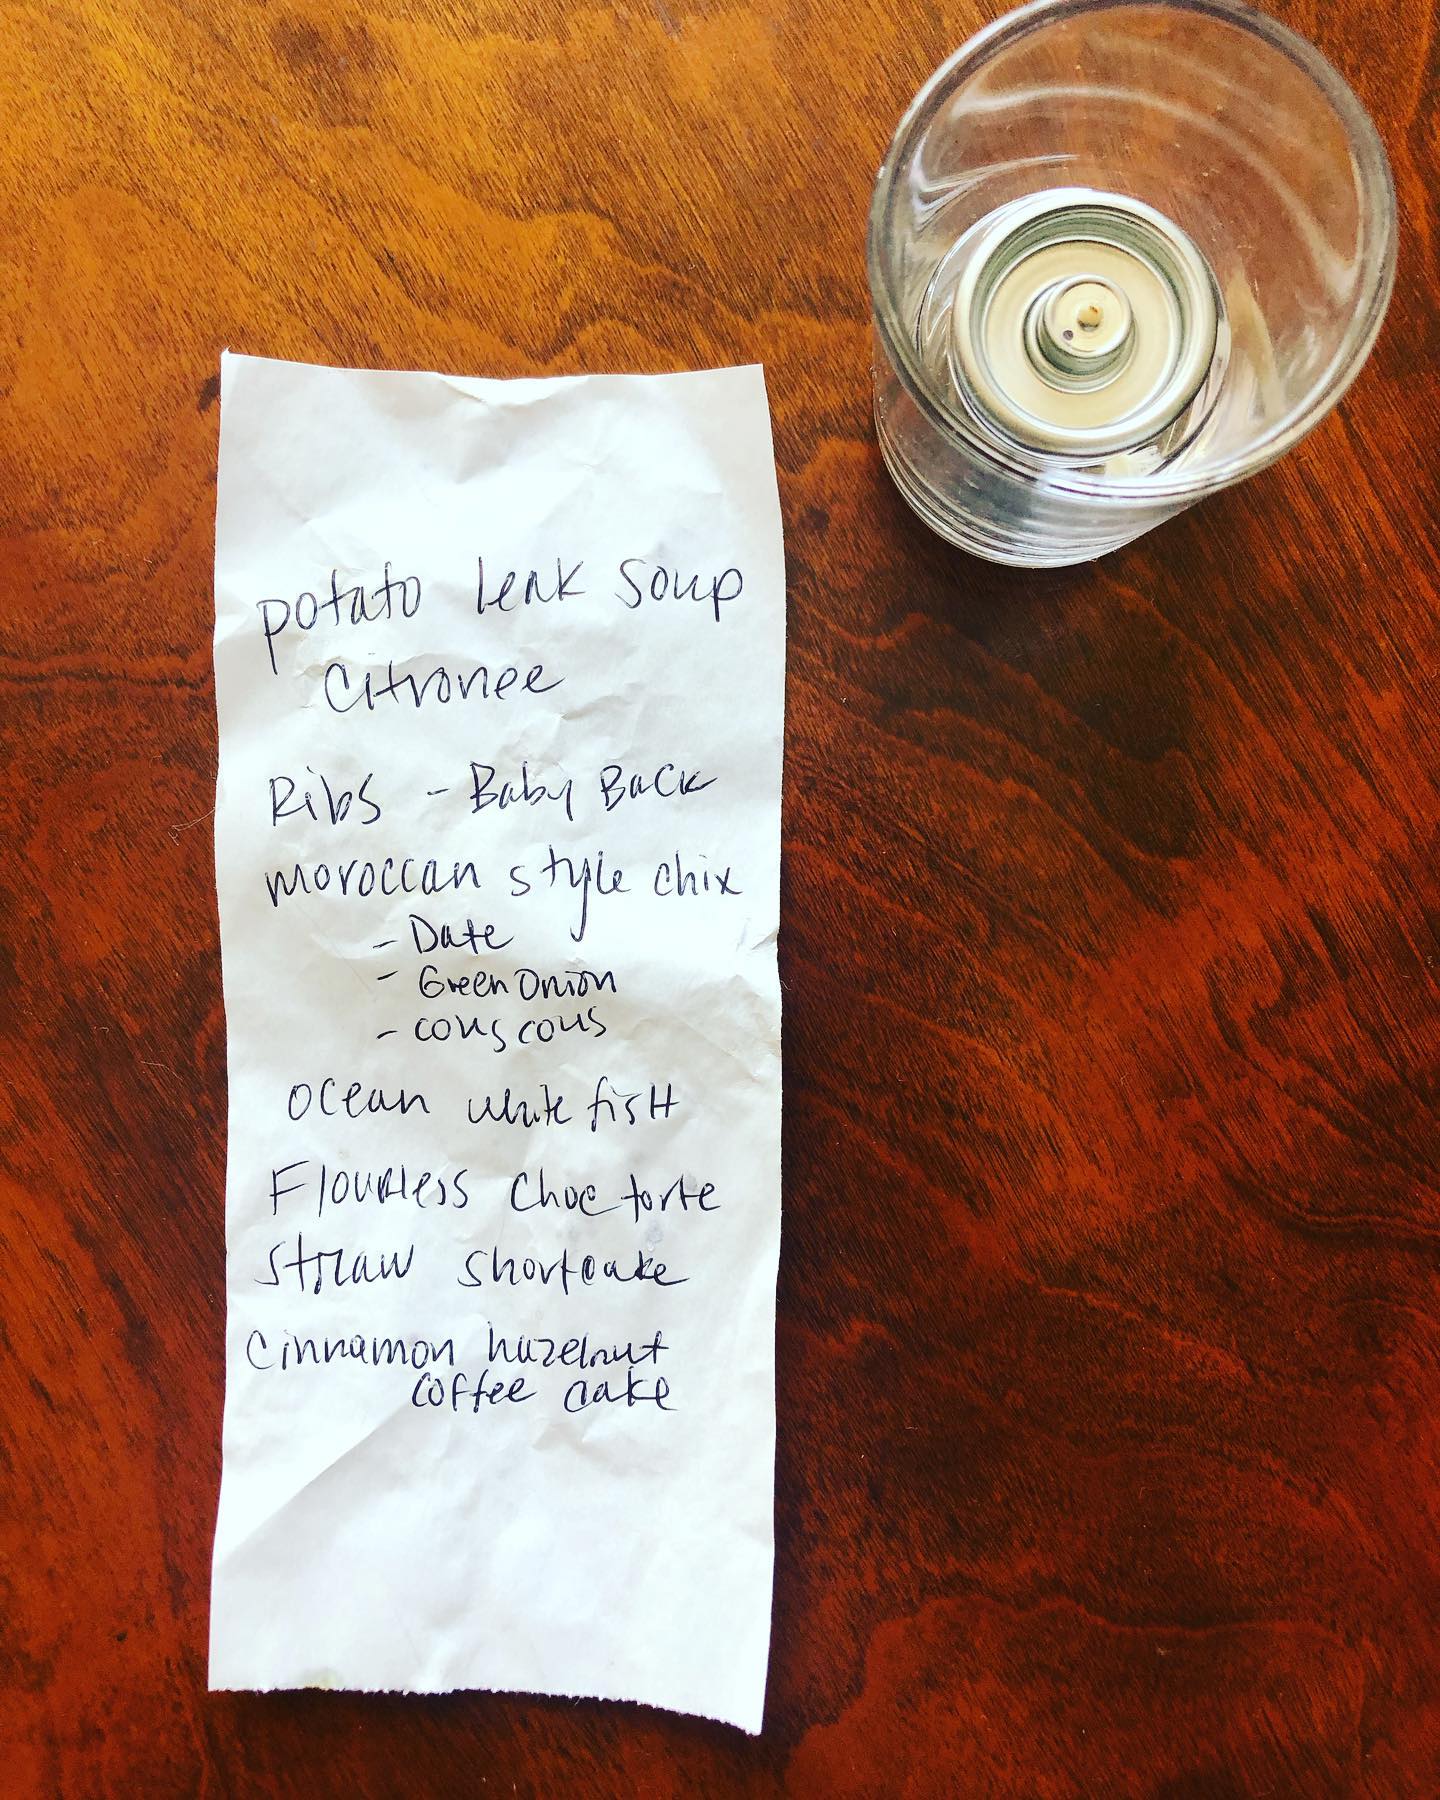 potato leek soup
Citronee
Ribs - Baby Back
moroccan style chix
- Date
- Green Onion
- couscous
ocean white fish
Flourless choc torte
straw shortcake
cinnamon hazelnut
coffee cake